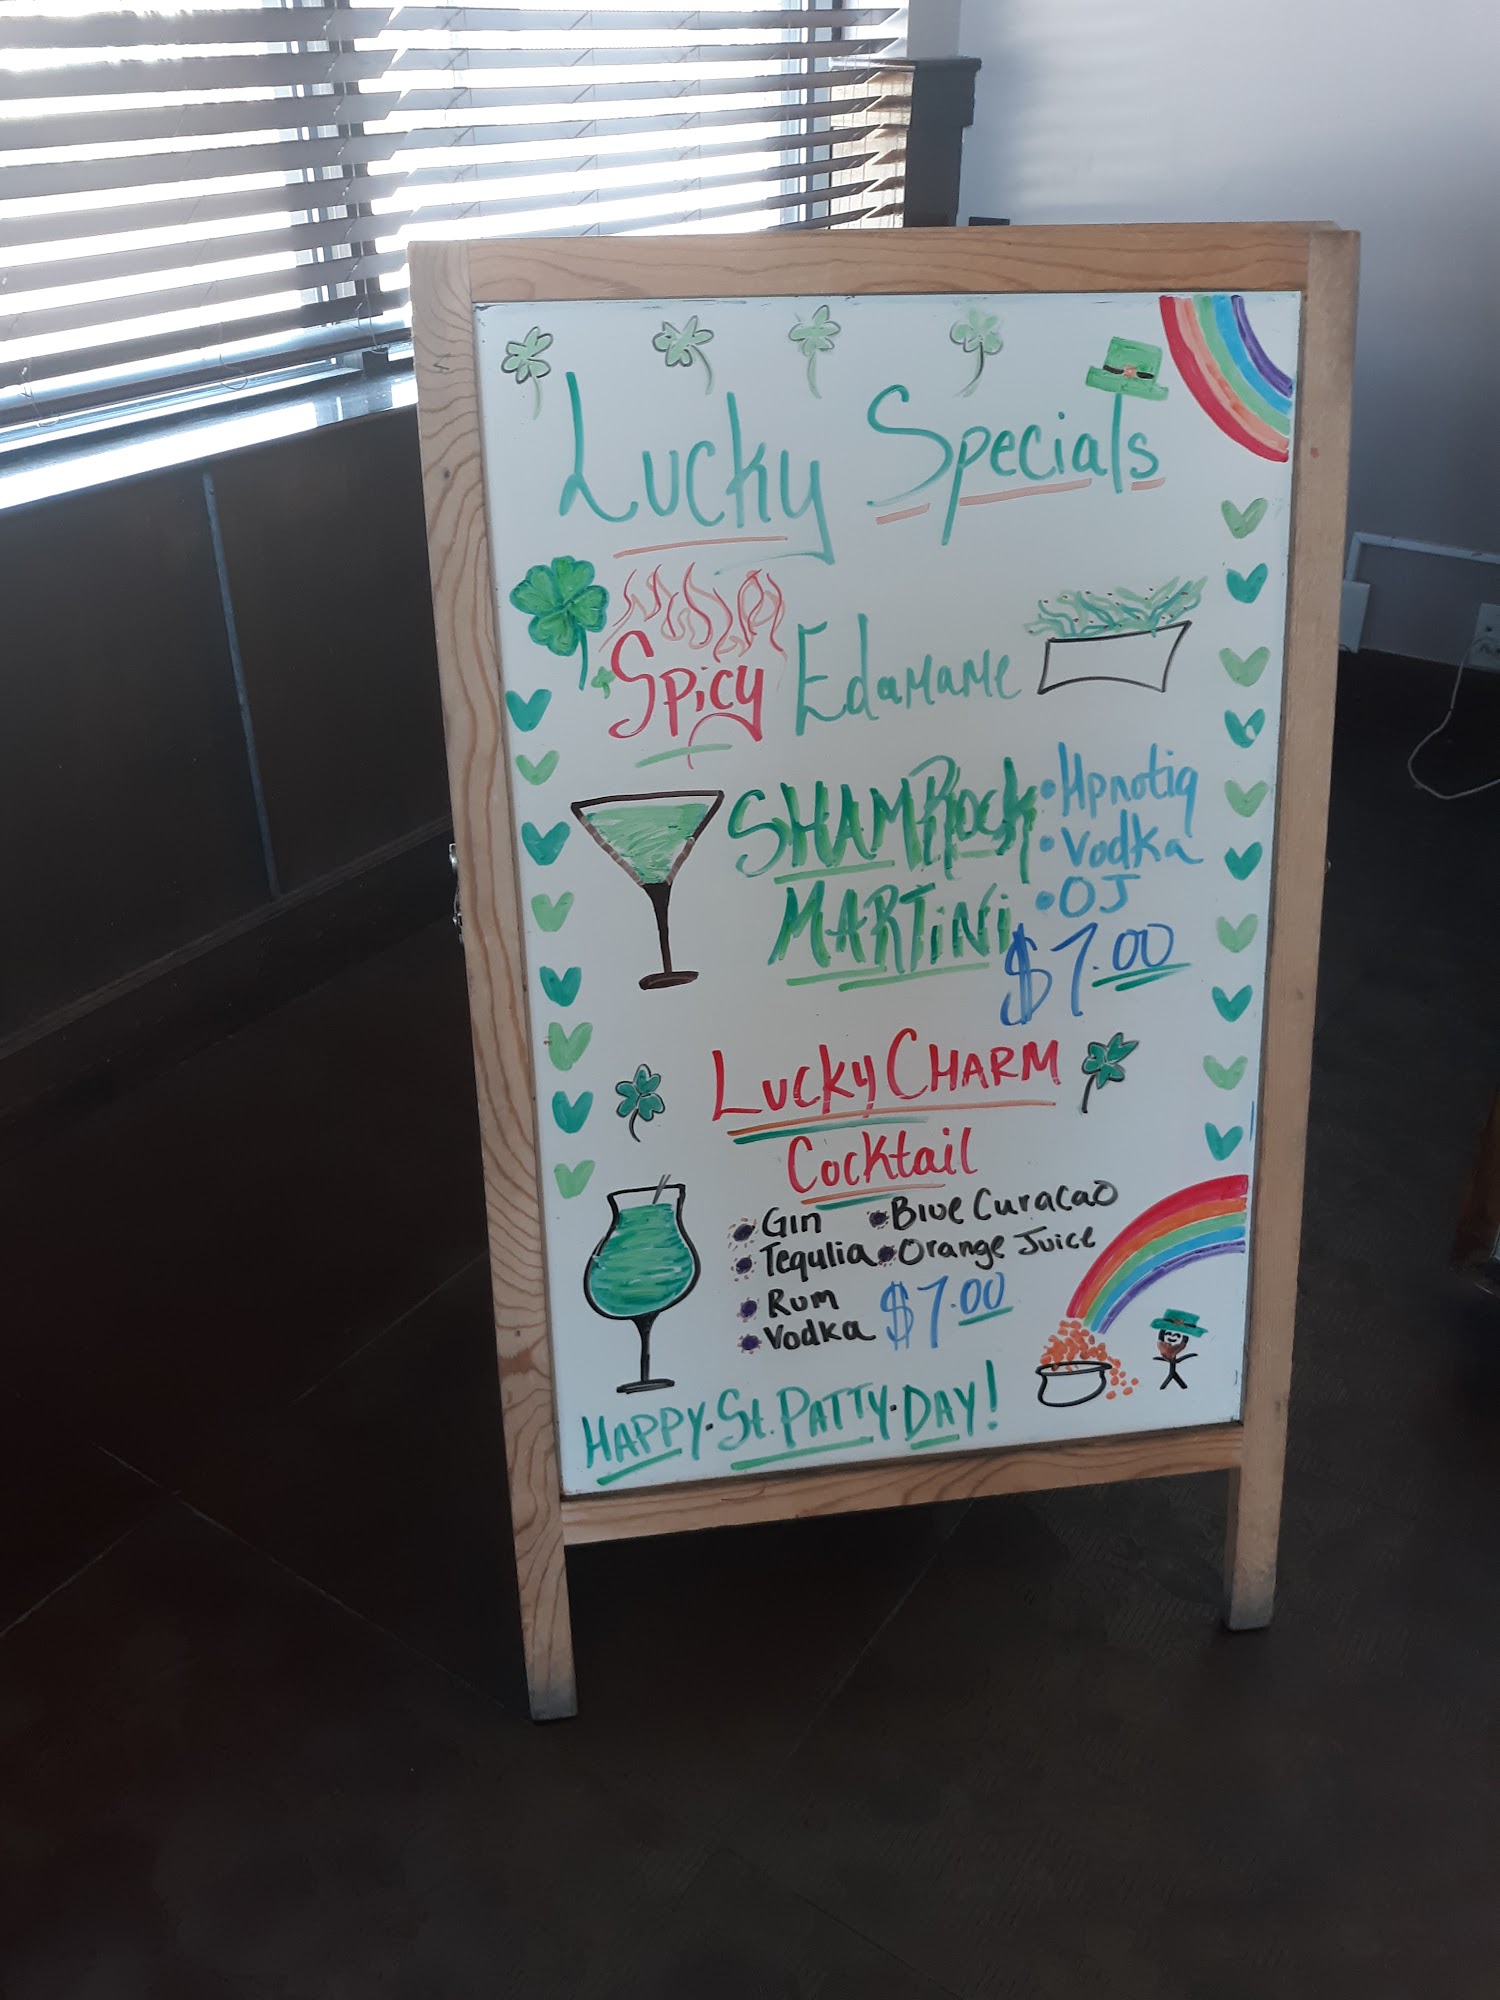 Lucky Specials
Spicy Edamame
SHAMRock
MARTiNi
• Hpnotiq
• Vodka
• OJ
$7.00
Lucky CHARM
Cocktail
Gin
Blue Curacao
Tequlia
Orange Juice
Rum
Vodka
$7.00
HAPPY·St.PATTY·DAY!